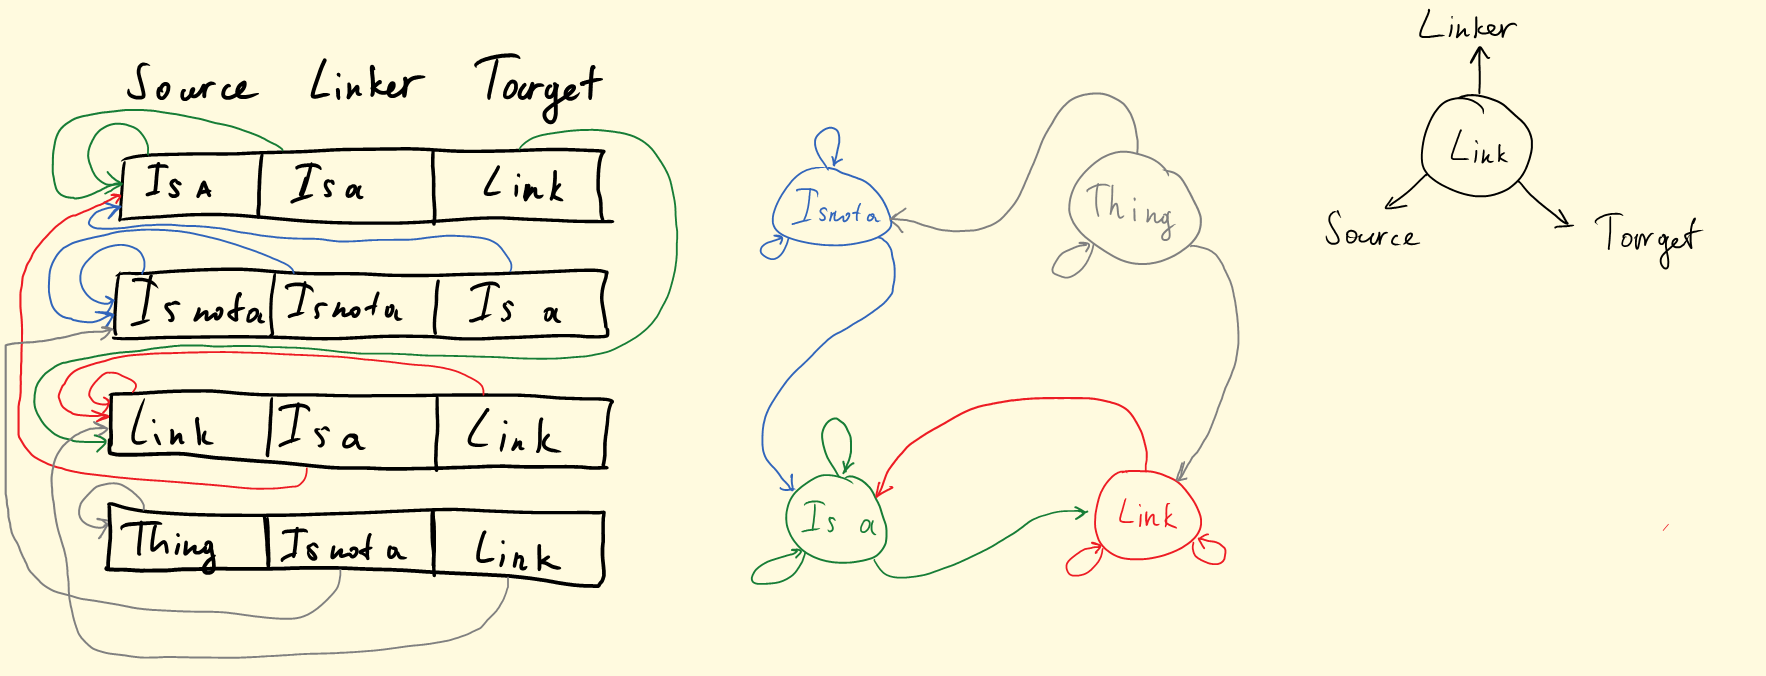 Source Linker Target
IsA Isa Link
Isnota Isnota Is a
Link Isa Link
Thing Isnota Link
Isnota
Thing
Is a
Link
Linker
Link
Source
Target